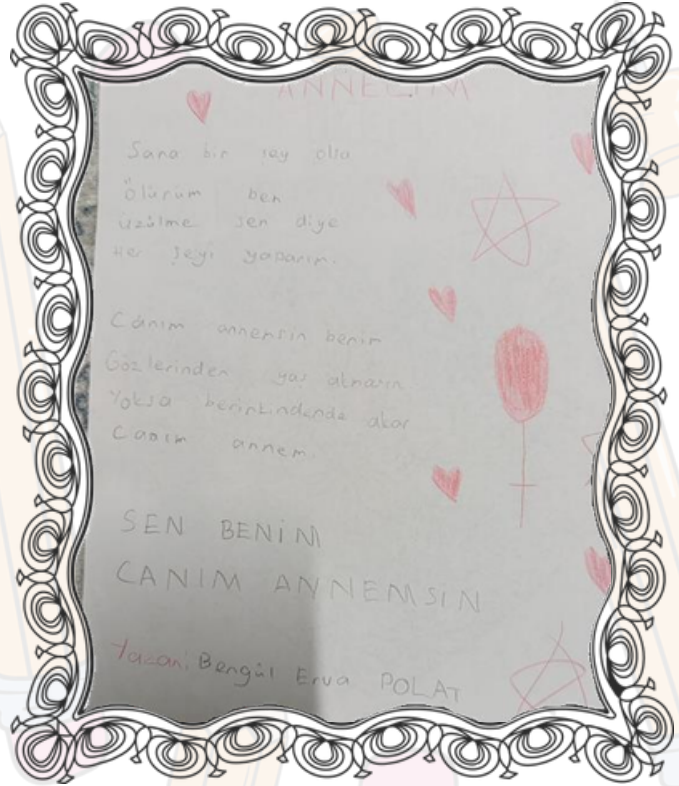 ANNECİM
Sana bir şey olsa
Ölürüm ben
üzülme sen diye
Her şeyi yaparım.
Canım annemsin benim
Gözlerinden yaş akmasın
Yoksa beriminkindende akar
Canım annem.
SEN BENİM
CANIM ANNEMSİN
Yazan: Bengül Erva POLAT